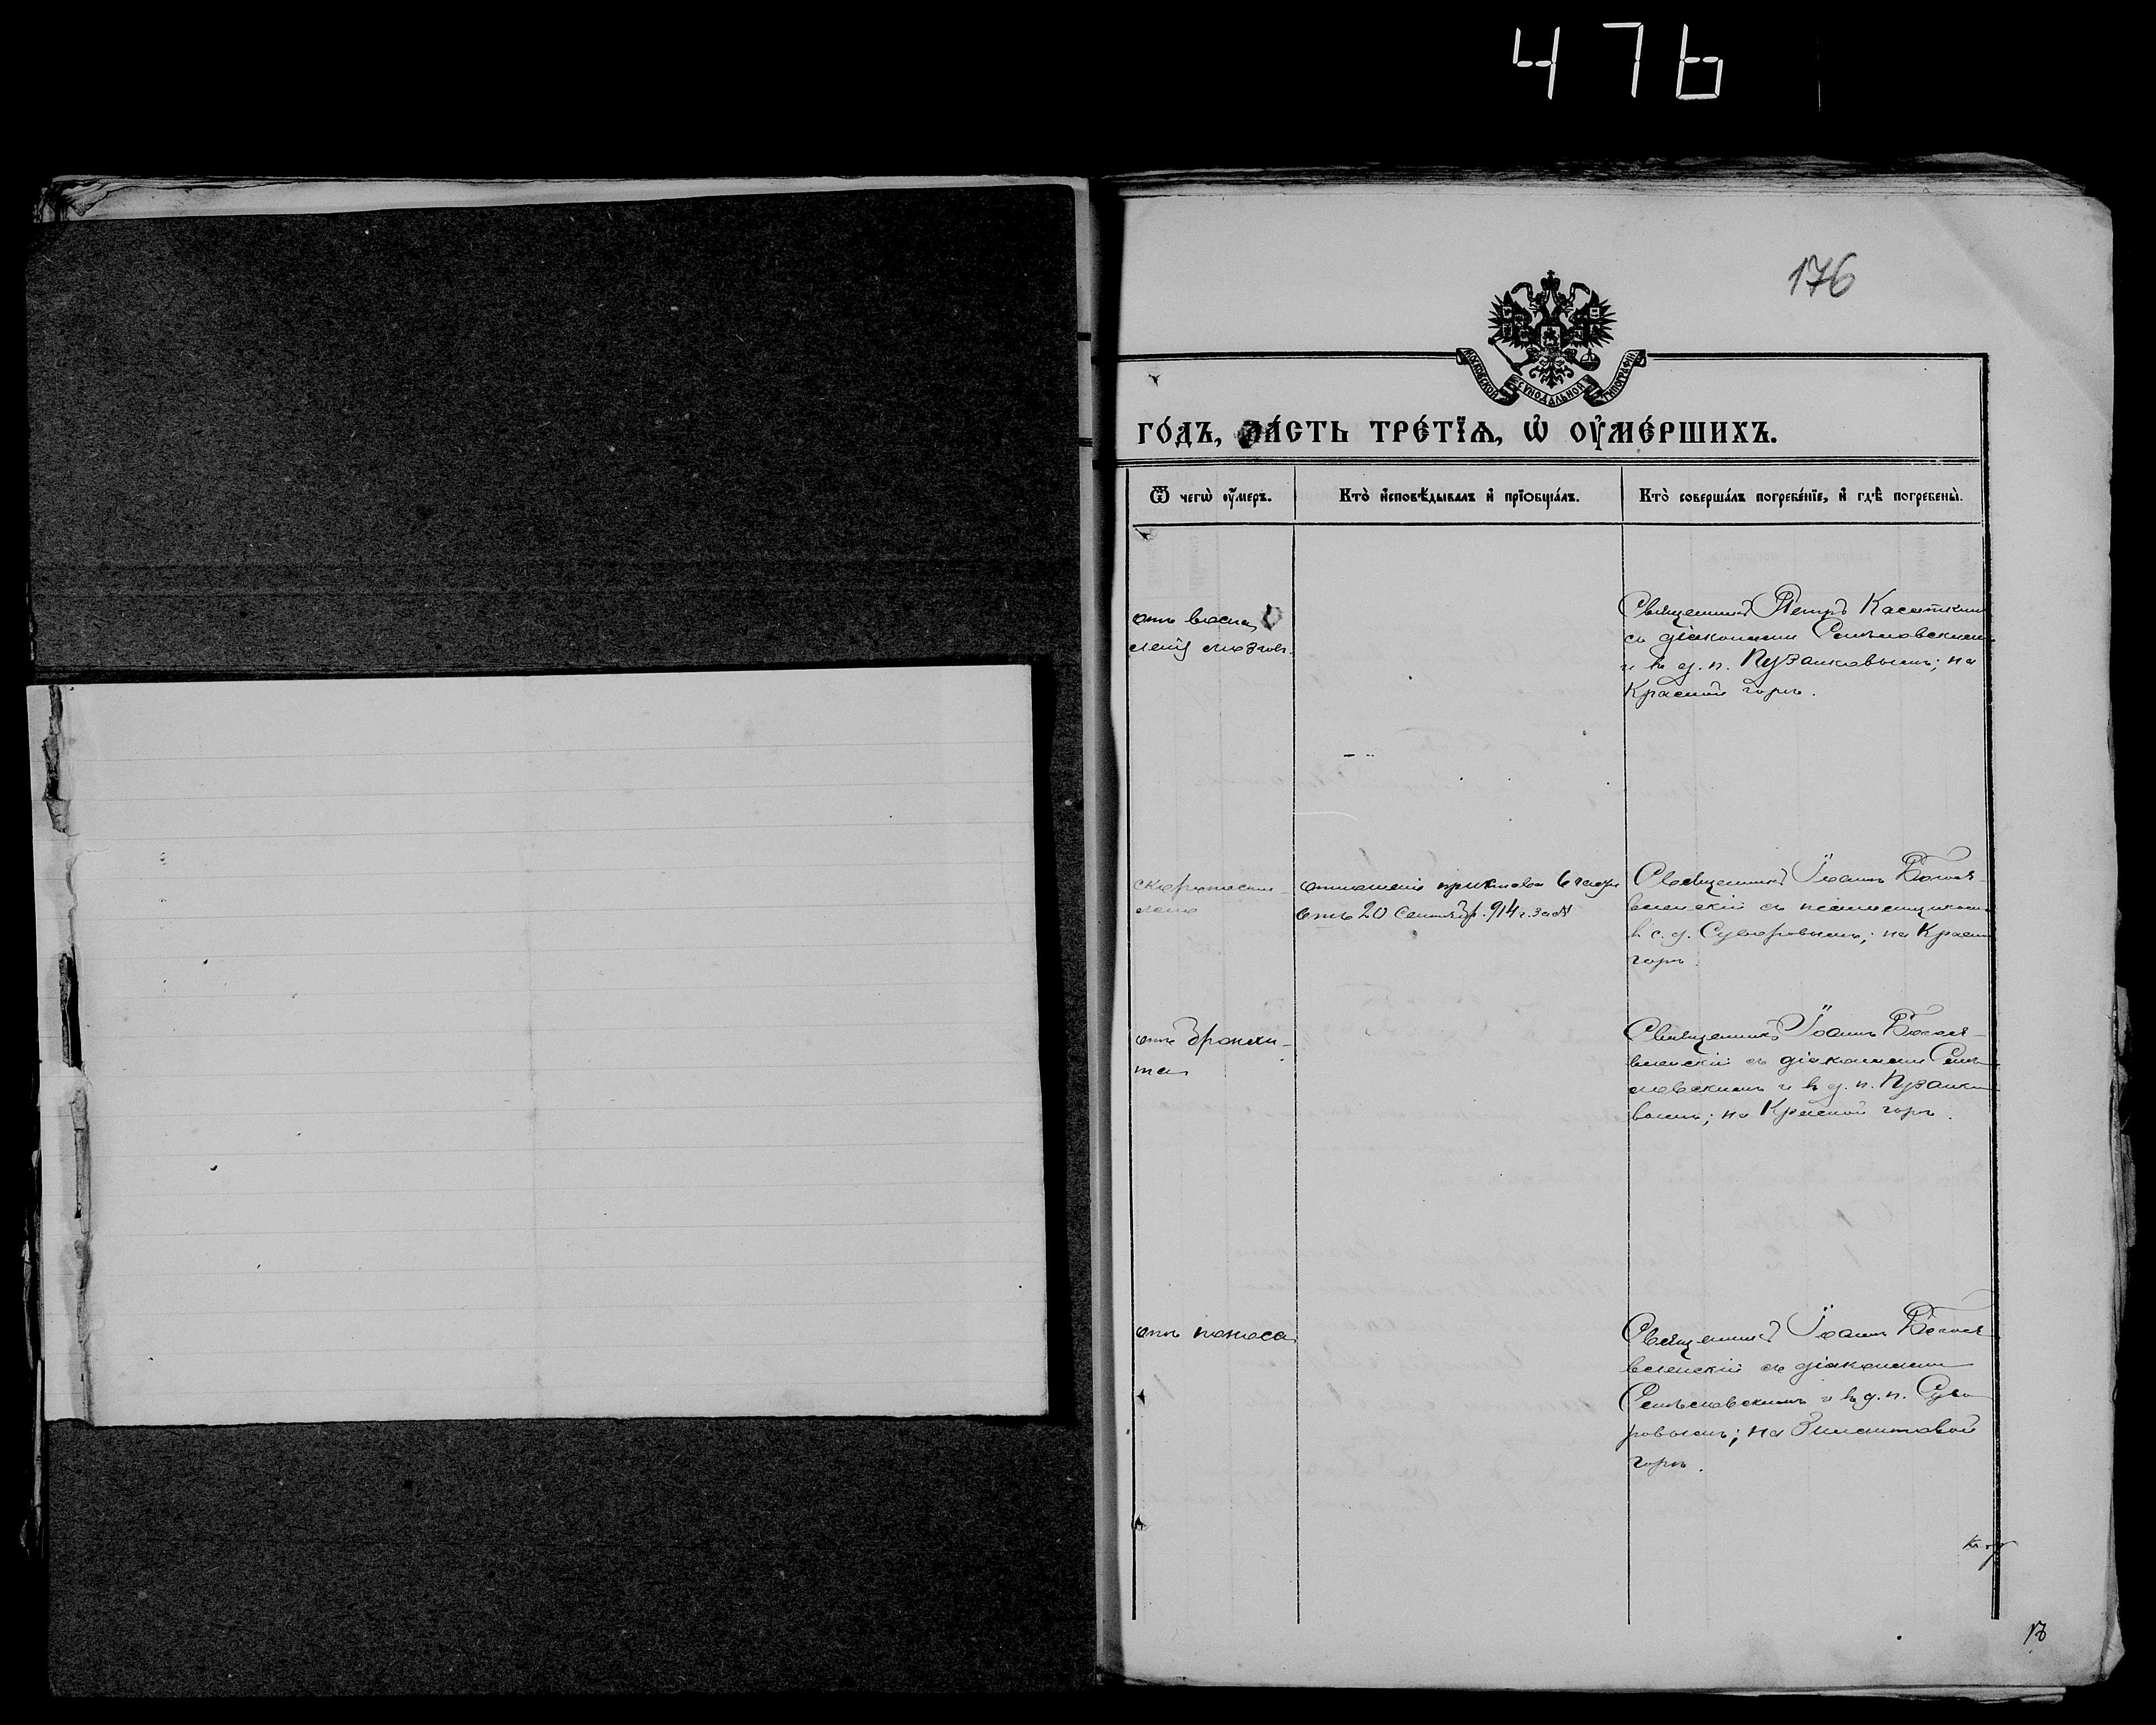 476
176
МОСКОВСКОЙ СѴНОДАЛЬНОЙ ТИПОГРАФІИ
ГО́ДЪ, ЧА́СТЬ ТРЕ́ТЇѦ, Ѡ҆ ОУ҆МЕ́РШИХЪ.
Ѿ чегѡ̀ оу҆́меръ.
Кто̀ и҆сповѣ́дывалъ и҆ прїѡбща́лъ.
Кто̀ соверша́лъ погребе́нїе, и҆ гдѣ̀ погребены̀.
отъ воспа
ленія мозговъ.
Священникъ Петръ Касаткинъ
съ діаконами
и в. д. п. Пузанковымъ; на
Красной горѣ.
скоропостиж-
отношеніе пристава 6 части
отъ 20 Сентябр. 914 г. за №
Священникъ Іоаннъ Богоя-
вленскій съ псаломщикомъ
в. с. д. Суворовымъ; на Красн
горѣ.
отъ бронхи-
та
Священникъ Іоаннъ Богоя-
вленскій съ діаконами
и в. д. п. Пузанко
вымъ; на Красной горѣ.
отъ поноса
Священникъ Іоаннъ Богоя-
вленскій съ діаконами
и в. д. п. Суво
ровымъ; на Зилантовой
горѣ.